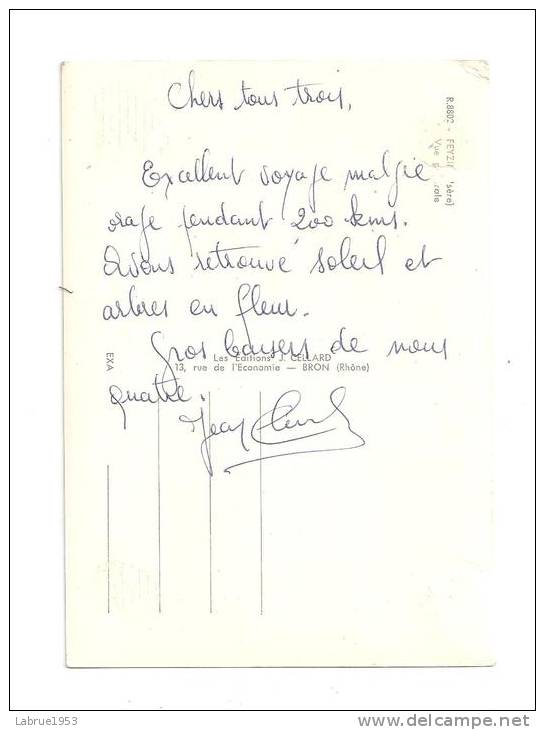 Chers tous trois,
Excellent voyage malgré
orage pendant 200 kms.
Avons retrouvé soleil et
arbres en fleur.
Gros baisers de nous
quatre.
Jean
Les Editions J. CELLARD
13, rue de l'Economie — BRON (Rhône)
EXA
R.8802 - FEYZIN
sère)
Vue
rale
Labrue1953
www.delcampe.net